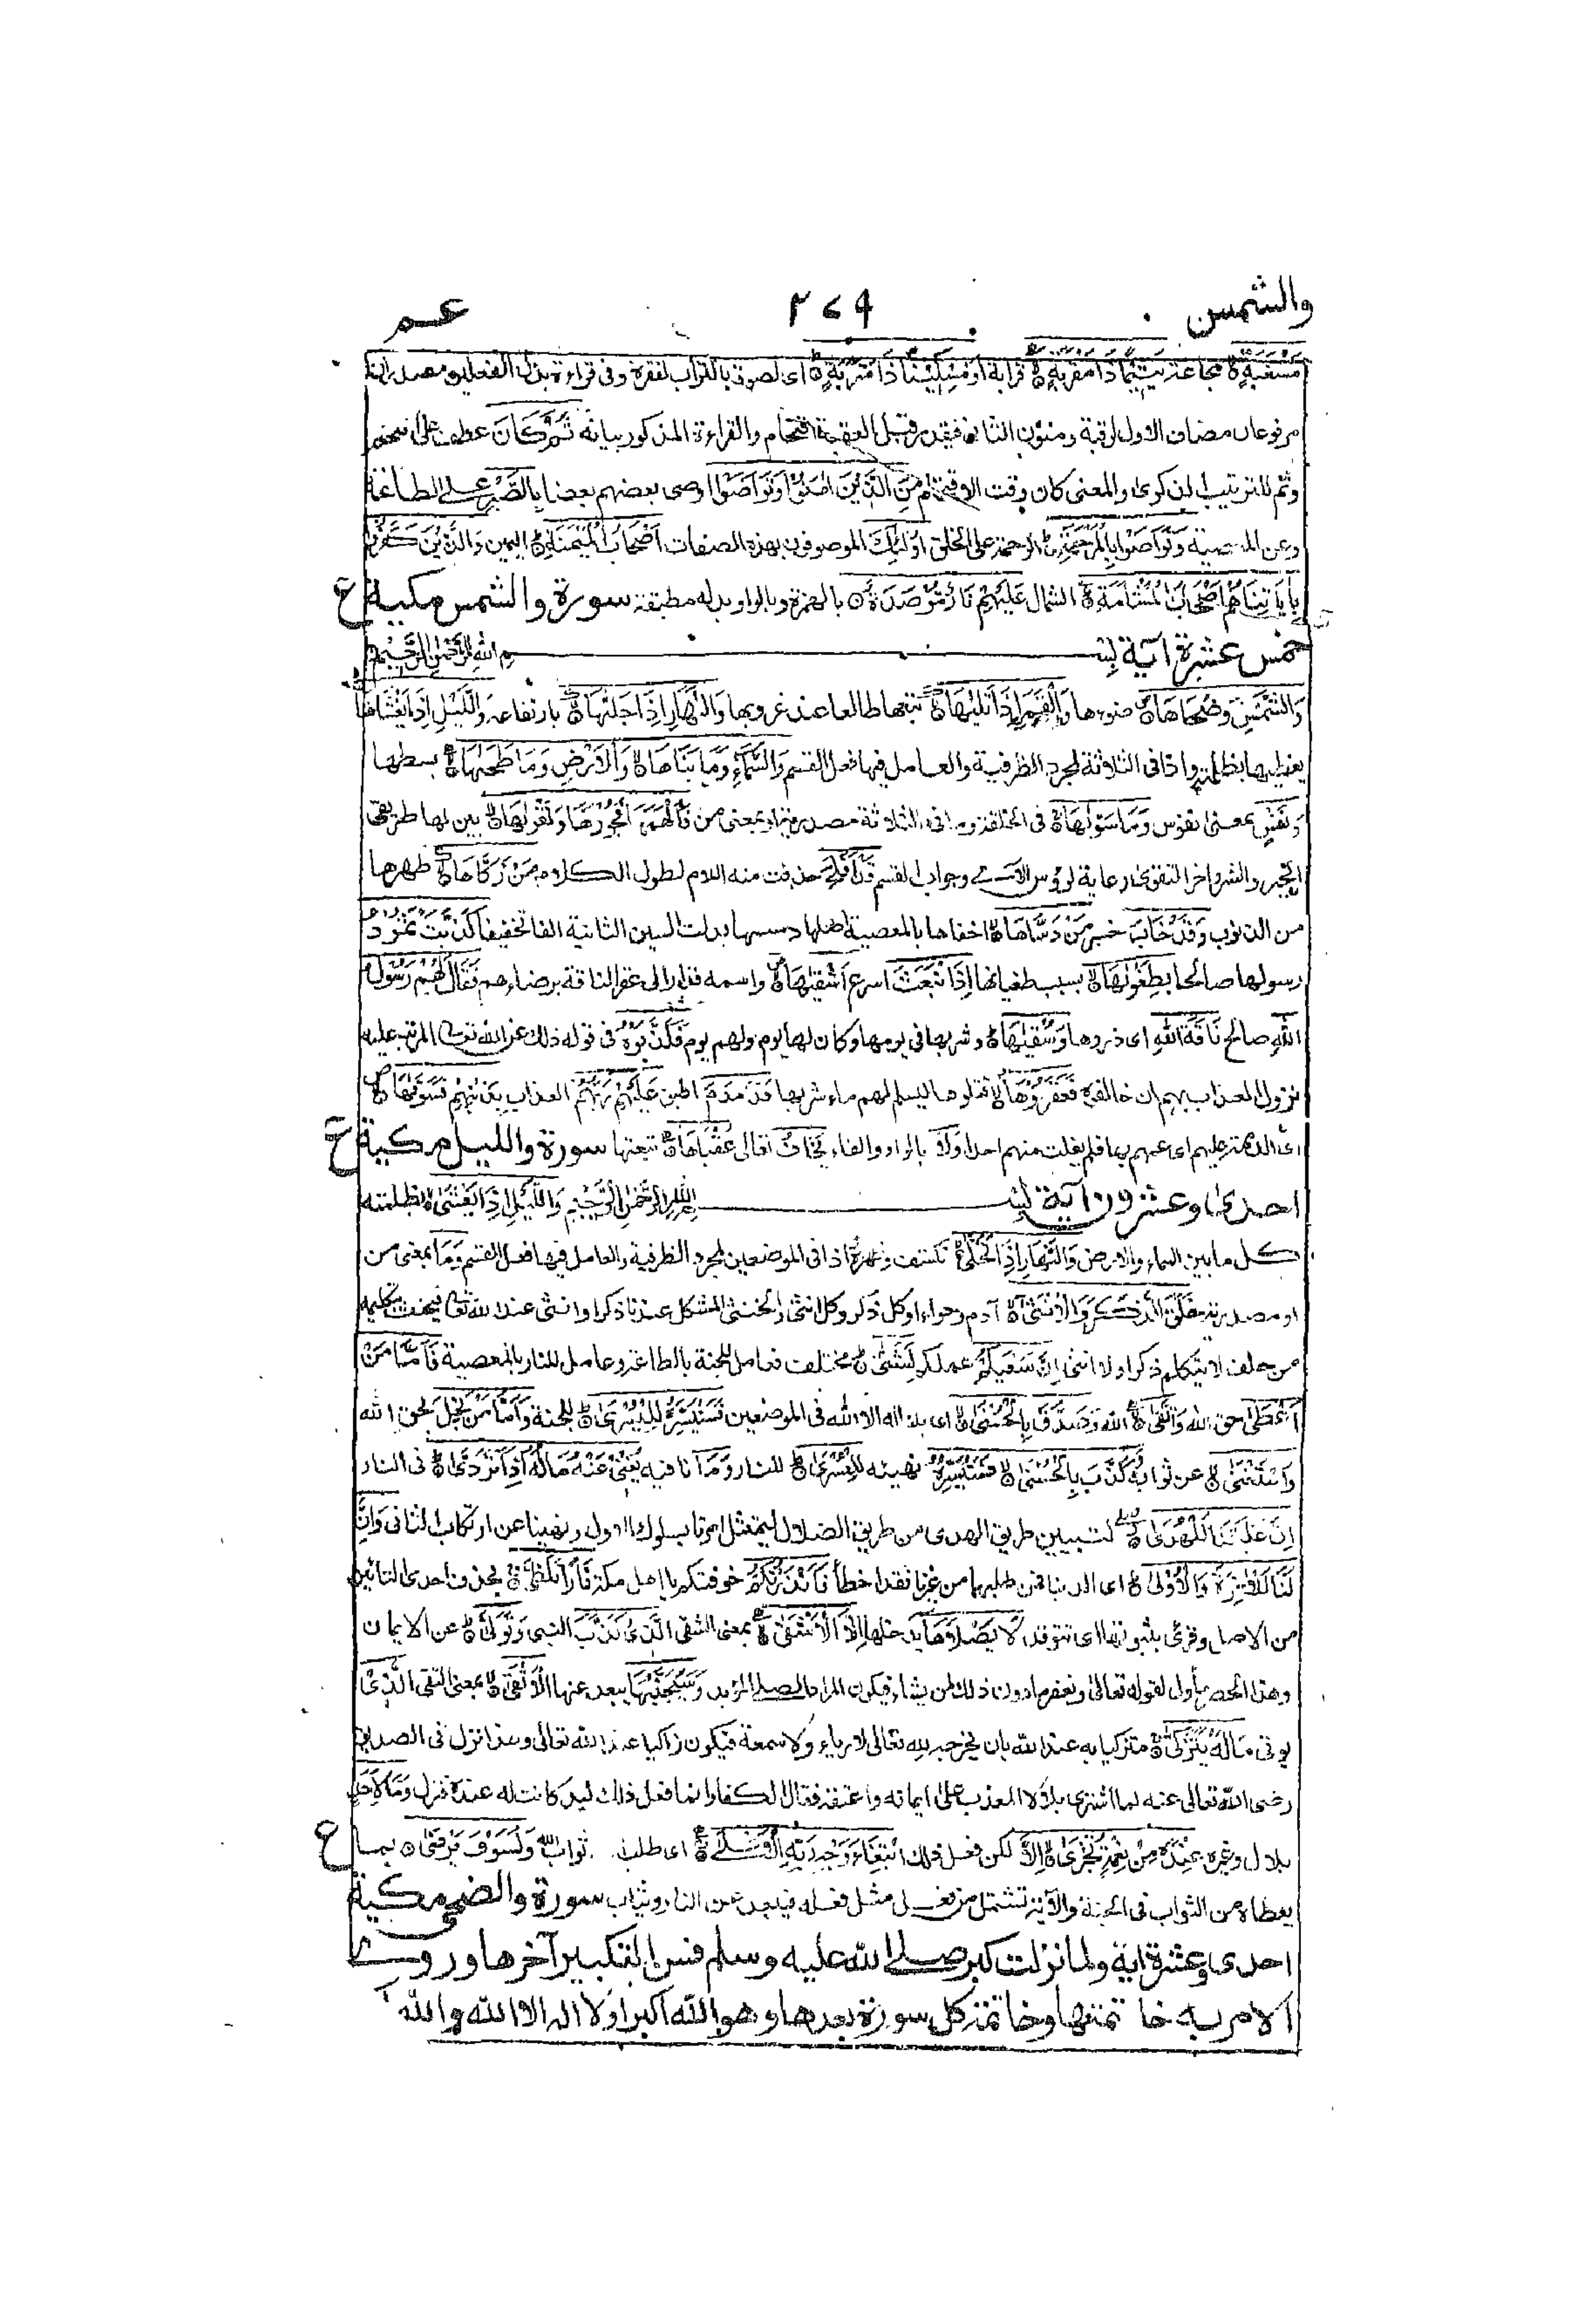 والشمس ٢٧٩ عم
مَسْغَبَةٍ مجاعة يَتِيْمًا ذَا مَقْرَبَةٍ قرابة اَوْ مِسْكِيْنًا ذَا مَتْرَبَةٍ اى لصوق بالتراب لفقره وفى قراءة بدل الفعلين مصدران
مرفوعان مضاف الاول لرقبة ومنون الثانى فيقدر قبل العقبة اقتحام والقراءة المذكورة بيانه ثُمَّ كَانَ عطف على اقتحم
وثم للترتيب الذكرى والمعنى كان وقت الاقتحام مِنَ الَّذِيْنَ اٰمَنُوْا وَتَوَاصَوْا اوصى بعضهم بعضا بِالصَّبْرِ على الطاعة
وعن المعصية وَتَوَاصَوْا بِالْمَرْحَمَةِ الرحمة على الخلق اُولٰٓئِكَ الموصوفون بهذه الصفات اَصْحَابُ الْمَيْمَنَةِ اليمين وَالَّذِيْنَ كَفَرُوْا
بِاٰيَاتِنَا هُمْ اَصْحٰبُ الْمَشْاَمَةِ الشمال عَلَيْهِمْ نَارٌ مُّؤْصَدَةٌ بالهمزة وبالواو بدله مطبقة سورة والشمس مكية ع
خمس عشرة آية بسم الله الرحمن الرحيم
وَالشَّمْسِ وَضُحَاهَا ضوءها وَالْقَمَرِ اِذَا تَلٰىهَا تبعها طالعا عند غروبها وَالنَّهَارِ اِذَا جَلّٰىهَا بارتفاعه وَاللَّيْلِ اِذَا يَغْشَاهَا
يغطيها بظلمته واذا فى الثلاثة لمجرد الظرفية والعامل فيها فعل القسم وَالسَّمَآءِ وَمَا بَنَاهَا وَالْاَرْضِ وَمَا طَحٰىهَا بسطها
وَنَفْسٍ بمعنى نفوس وَمَا سَوّٰىهَا فى الخلقة وما فى الثلاثة مصدرية او بمعنى من فَاَلْهَمَهَا فُجُوْرَهَا وَتَقْوٰىهَا بين لها طريقى
الخير والشر واخر التقوى رعاية لرؤس الآى وجواب القسم قَدْ اَفْلَحَ حذفت منه اللام لطول الكلام مَنْ زَكَّاهَا طهرها
من الذنوب وَقَدْ خَابَ خسر مَنْ دَسَّاهَا اخفاها بالمعصية اصلها دسسها بدلت السين الثانية الفا تخفيفا كَذَّبَتْ ثَمُوْدُ
رسولها صالحا بِطَغْوٰىهَا بسبب طغيانها اِذِ انْبَعَثَ اسرع اَشْقٰىهَا واسمه قدار الى عقر الناقة برضاءهم فَقَالَ لَهُمْ رَسُوْلُ
اللّٰهِ صالح نَاقَةَ اللّٰهِ اى ذروها وَسُقْيٰهَا وشربها فى يومها وكان لها يوم ولهم يوم فَكَذَّبُوْهُ فى قوله ذلك عن الله تعالى المرتب عليه
نزول العذاب بهم ان خالفوه فَعَقَرُوْهَا قتلوها ليسلم لهم ماء شربها فَدَمْدَمَ اطبق عَلَيْهِمْ رَبُّهُمْ العذاب بِذَنْبِهِمْ فَسَوّٰىهَا
اى الدمدمة عليهم اى عمهم بها فلم يفلت منهم احدا وَلَا بالواو والفاء يَخَافُ تعالى عُقْبَاهَا تبعتها سورة والليل مكية ع
احدى وعشرون آية بسم الله الرحمن الرحيم وَاللَّيْلِ اِذَا يَغْشٰى بظلمته
كل ما بين السماء والارض وَالنَّهَارِ اِذَا تَجَلّٰى تكشف وظهر واذا فى الموضعين لمجرد الظرفية والعامل فيها فعل القسم وَمَا بمعنى من
او مصدرية خَلَقَ الذَّكَرَ وَالْاُنْثٰى آدم وحواء او كل ذكر وكل انثى والخنثى المشكل عندنا ذكر او انثى عند الله تعالى فيحنث بتكليمه
من حلف لا يتكلم ذكرا ولا انثى اِنَّ سَعْيَكُمْ عملكم لَشَتّٰى مختلف فعامل للجنة بالطاعة وعامل للنار بالمعصية فَاَمَّا مَنْ
اَعْطٰى حق الله وَاتَّقٰى الله وَصَدَّقَ بِالْحُسْنٰى اى بلا اله الا الله فى الموضعين فَسَنُيَسِّرُهُ لِلْيُسْرٰى للجنة وَاَمَّا مَنْ بَخِلَ بحق الله
وَاسْتَغْنٰى عن ثوابه وَكَذَّبَ بِالْحُسْنٰى فَسَنُيَسِّرُهُ نهيئه لِلْعُسْرٰى للنار وَمَا نافية يُغْنِيْ عَنْهُ مَالُهُ اِذَا تَرَدّٰى فى النار
اِنَّ عَلَيْنَا لَلْهُدٰى لتبيين طريق الهدى من طريق الضلال ليمتثل امرنا بسلوك الاول ونهينا عن ارتكاب الثانى وَاِنَّ
لَنَا لَلْاٰخِرَةَ وَالْاُوْلٰى اى الدنيا فمن طلبهما من غيرنا فقد اخطأ فَاَنْذَرْتُكُمْ خوفتكم يا اهل مكة نَارًا تَلَظّٰى بحذف احدى التائين
من الاصل وقرئ بثبوتها اى تتوقد لَا يَصْلٰىهَا يدخلها اِلَّا الْاَشْقٰى بمعنى الشقى الَّذِيْ كَذَّبَ النبى وَتَوَلّٰى عن الايمان
وهذا الحصر مأول لقوله تعالى ويغفر ما دون ذلك لمن يشاء فيكون المراد الصلى المؤبد وَسَيُجَنَّبُهَا يبعد عنها الْاَتْقٰى بمعنى التقى الَّذِيْ
يُؤتى مَالَهُ يَتَزَكّٰى متزكيا به عند الله بان يخرجه لله تعالى لا رياء ولا سمعة فيكون زاكيا عند الله تعالى وهذا نزل فى الصديق
رضى الله تعالى عنه لما اشترى بلالا المعذب على ايمانه واعتقه فقال الكفار انما فعل ذلك ليد كانت له عنده فنزل وَمَا لِاَحَدٍ
بلال وغيره عِنْدَهُ مِنْ نِعْمَةٍ تُجْزٰى اِلَّا لكن فعل ذلك ابْتِغَاءَ وَجْهِ رَبِّهِ الْاَعْلٰى اى طلب ثواب الله وَلَسَوْفَ يَرْضٰى بما ع
يعطاه من الثواب فى الجنة والآية تشتمل من فعل مثل فعله فيبعد عن النار ويثاب سورة والضحى مكية
احدى عشرة اية ولما نزلت كبر صلى الله عليه وسلم فسن التكبير آخرها وروى
الامر به خاتمتها وخاتمة كل سورة بعدها وهو الله اكبر او لا اله الا الله والله